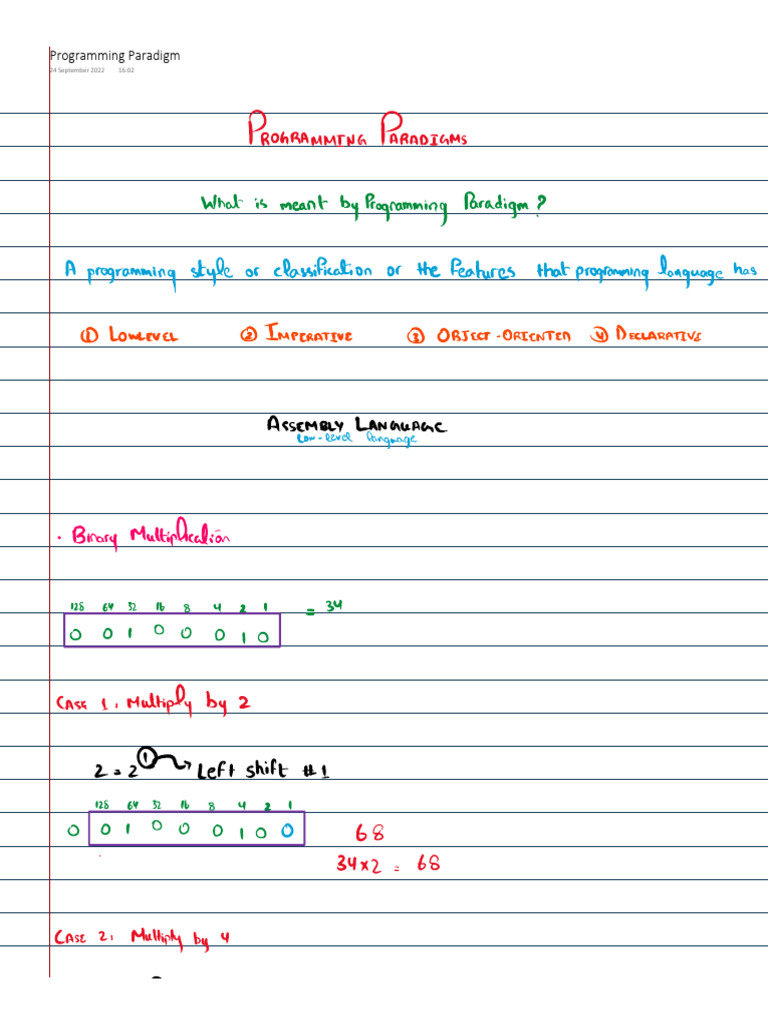 Programming Paradigm
24 September 2022 16:02
PROGRAMMING PARADIGMS
What is meant by Programming Paradigm?
A programming style or classification or the features that programming language has
① LOWLEVEL ② IMPERATIVE ③ OBJECT-ORIENTED ④ DECLARATIVE
ASSEMBLY LANGUAGE
Low-level language
• Binary Multiplication
128 64 32 16 8 4 2 1 = 34
0 0 1 0 0 0 1 0
CASE 1: Multiply by 2
2 = 2^① → Left shift #1
128 64 32 16 8 4 2 1
0 0 1 0 0 0 1 0 0 68
34 x 2 = 68
CASE 2: Multiply by 4